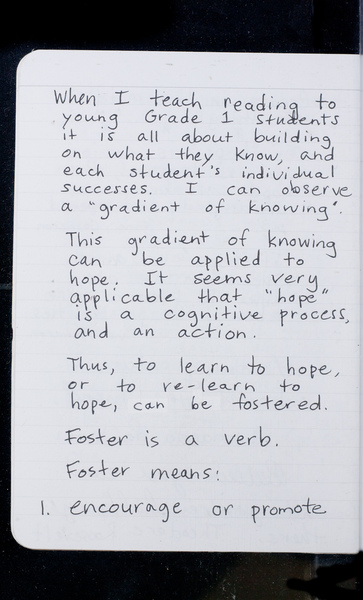 When I teach reading to
young Grade 1 students
it is all about building
on what they know, and
each student's individual
successes. I can observe
a "gradient of knowing".
This gradient of knowing
can be applied to
hope. It seems very
applicable that "hope"
is a cognitive process,
and an action.
Thus, to learn to hope,
or to re-learn to
hope, can be fostered.
Foster is a verb.
Foster means:
1. encourage or promote